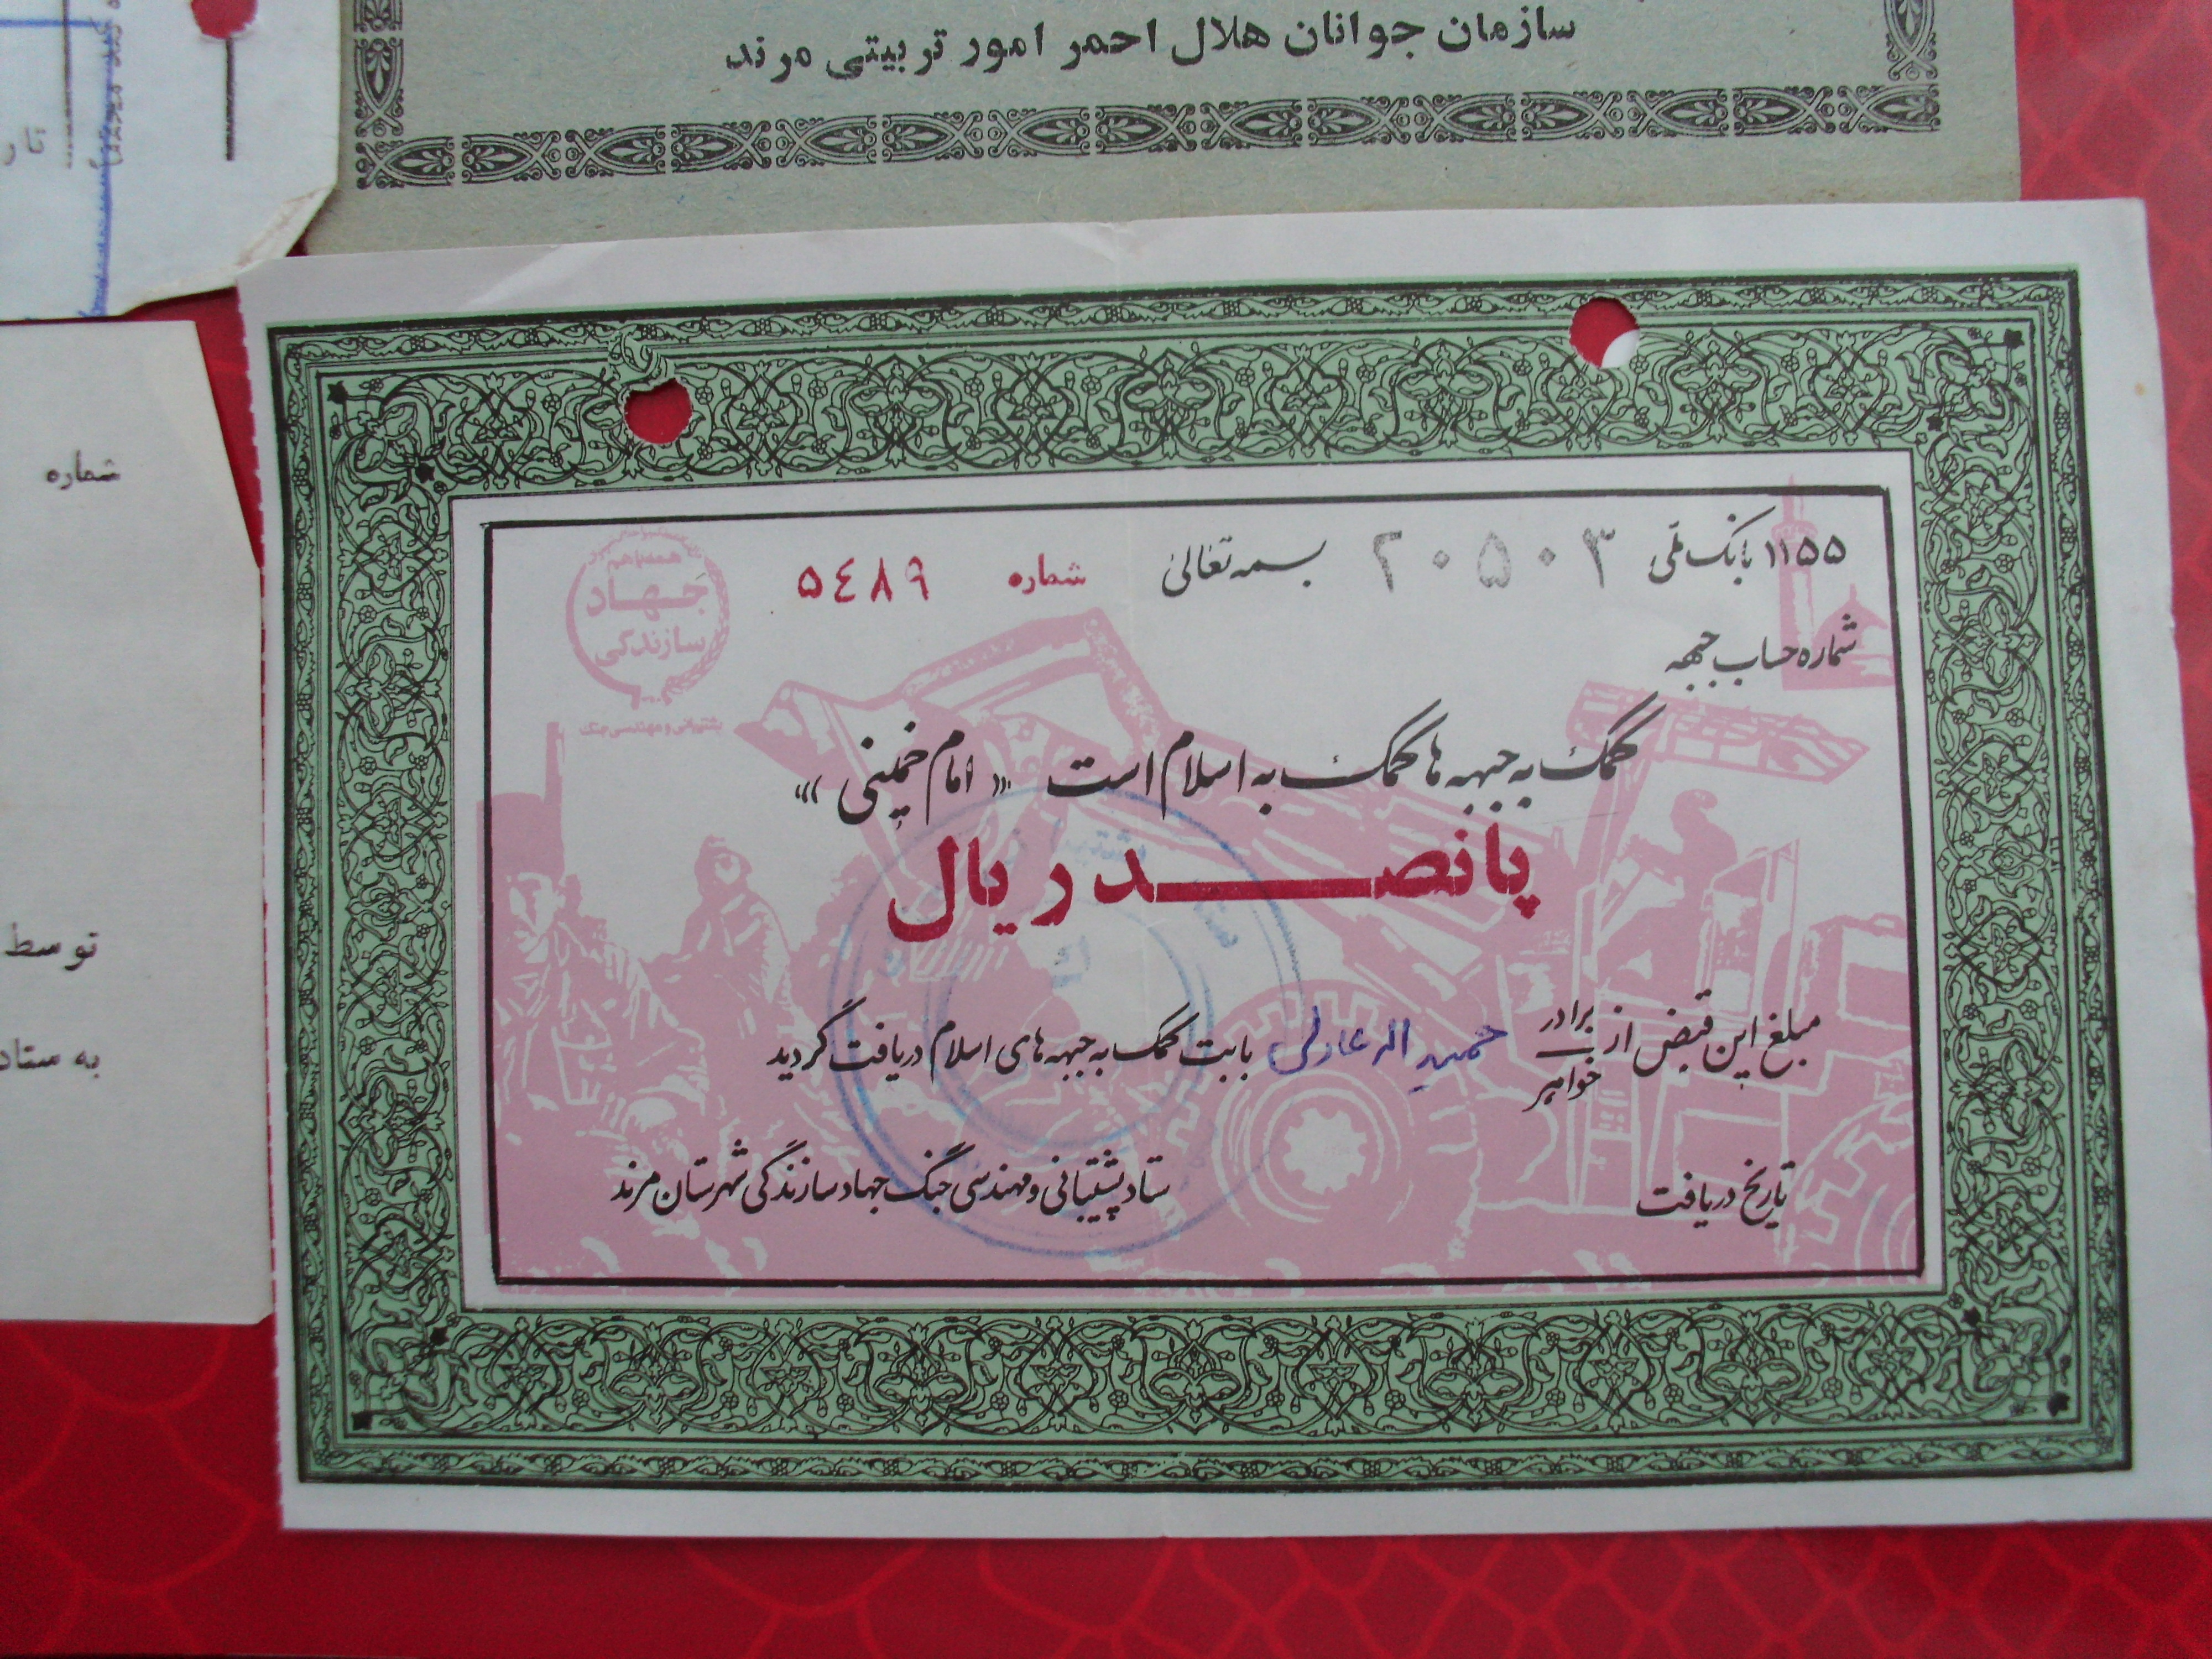 سازمان جوانان هلال احمر امور تربیتی مرند
تار
شماره
توسط
به ستاد
۱۱۵۵ بانک ملی
۲۰۵۰۳
بسمه تعالی
شماره ۵٤۸۹
شماره حساب جبهه
همه با هم
جهاد
سازندگی
پشتیبانی و مهندسی جنگ
کمک به جبهه ها کمک به اسلام است «امام خمینی»
پانصد ریال
مبلغ این قبض از برادر
خواهر
حمید اله عادلی بابت کمک به جبهه های اسلام دریافت گردید
تاریخ دریافت
ستاد پشتیبانی و مهندسی جنگ جهاد سازندگی شهرستان مرند